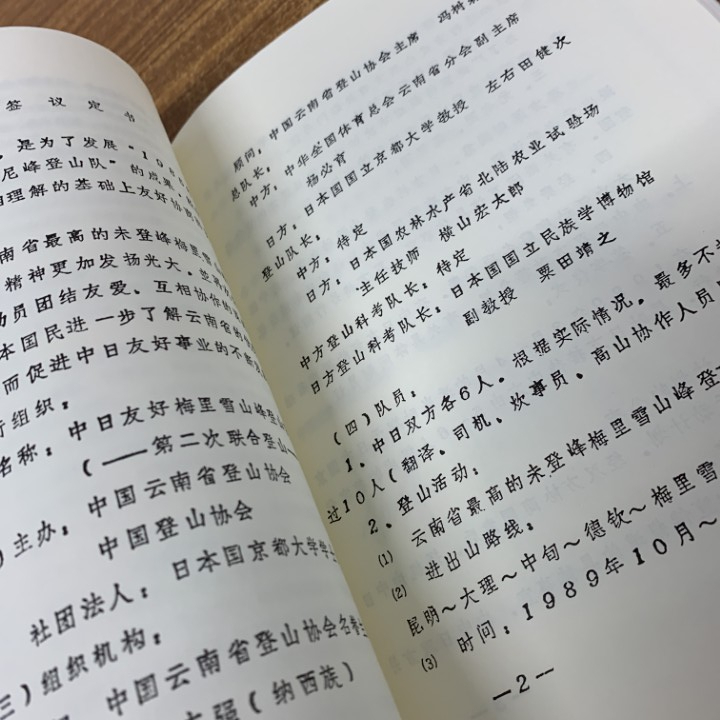 签议定书
是为了发展“198
尼峰登山队”的成果，
理解的基础上友好协
南省最高的未登峰梅里
精神更加发扬光大，并将
员团结友爱、互相协作的
本国民进一步了解云南省的
而促进中日友好事业的不断
行组织：
名称：中日友好梅里雪山峰登山
（——第二次联合登山
）主办：中国云南省登山协会
中国登山协会
日本国京都大学学士
社团法人：
三）组织机构：
中国云南省登山协会名誉主
强（纳西族）
顾问：中国云南省登山协会主席 冯树
总队长：
中方：中华全国体育总会云南省分会副主席
杨必育
日方：日本国国立京都大学教授 左右田健次
登山队长：
中方：待定
日方：日本国农林水产省北陆农业试验场
主任技师 横山宏太郎
中方登山科考队长：待定
日方登山科考队长：日本国国立民族学博物馆
副教授 栗田靖之
（四）队员：
1、中日双方各6人。根据实际情况。最多不
过10人（翻译、司机、炊事员、高山协作人员
2、登山活动：
(1) 云南省最高的未登峰梅里雪山峰登
(2) 进出山路线：
昆明～大理～中旬～德钦～梅里雪
(3) 时间：1989年10月～
—2—